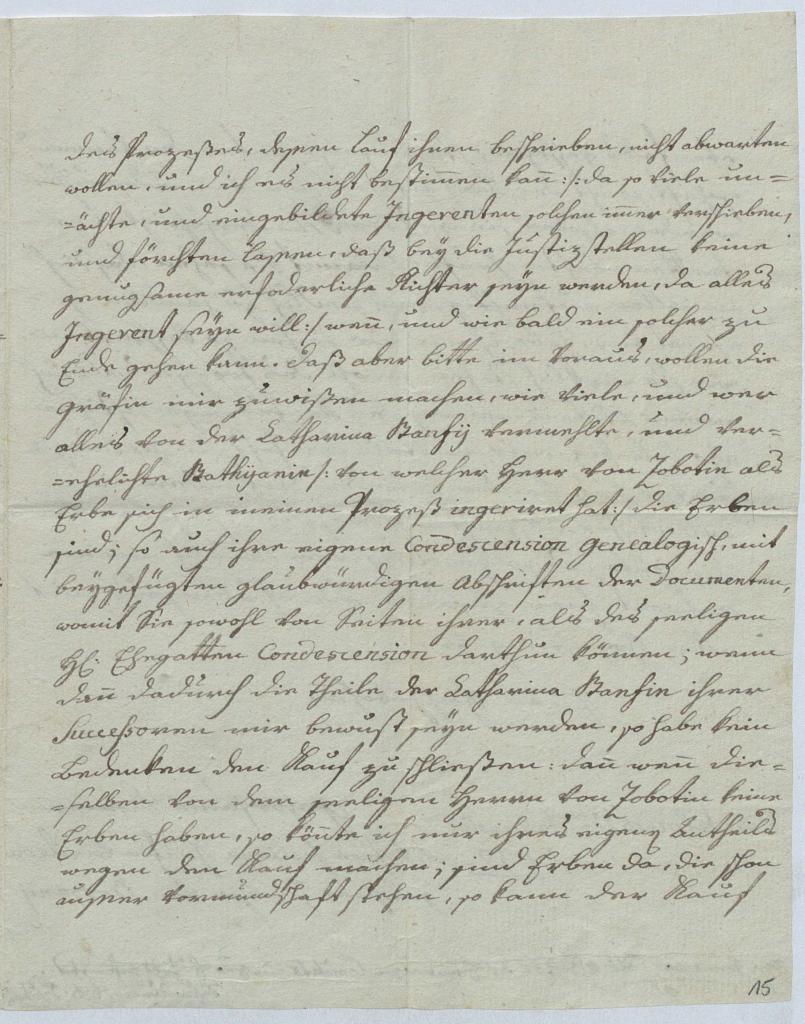 des Prozeßes, deßen Lauf ihnen beschrieben, nicht abwarten
wollen, und ich es nicht bestimmen kann :/: da so viele un-
=ächte, und eingebildete Ingerenten solchen immer verschieben,
und förchten laßen, daß bey die Justizstellen keine
genugsame erforderliche Richter seyn werden, da alles
Ingerent seyn will :/ wenn, und wie bald ein solcher zu
Ende gehen kann. daß aber bitte im Voraus, wollen die
Gräfin mir zuwißen machen, wie viele, und wer
alles von der Catharina Banfij vermehlte, und ver-
=ehelichte Bathijanin /: von welcher Herr von Jobotin als
Erbe sich in meinen Prozeß ingeriret hat :/ die Erben
sind; so auch ihre eigene Condescension genealogisch, mit
beygefügten glaubwürdigen Abschriften der Documenten,
womit Sie sowohl von Seiten ihrer, als des seeligen
H: Ehegatten Condescension darthun können; wenn
dann dadurch die Theile der Catharina Banfin ihrer
Successoren mir bewust seyn werden, so habe kein
Bedenken den Kauf zu schließen: dann wenn die-
=selben von dem seeligen Herrn von Jobotin keine
Erben haben, so könnte ich nur ihres eigenen Antheils
wegen den Kauf machen; sind Erben da, die schon
außer Vormundschaft stehen, so kann der Kauf
15